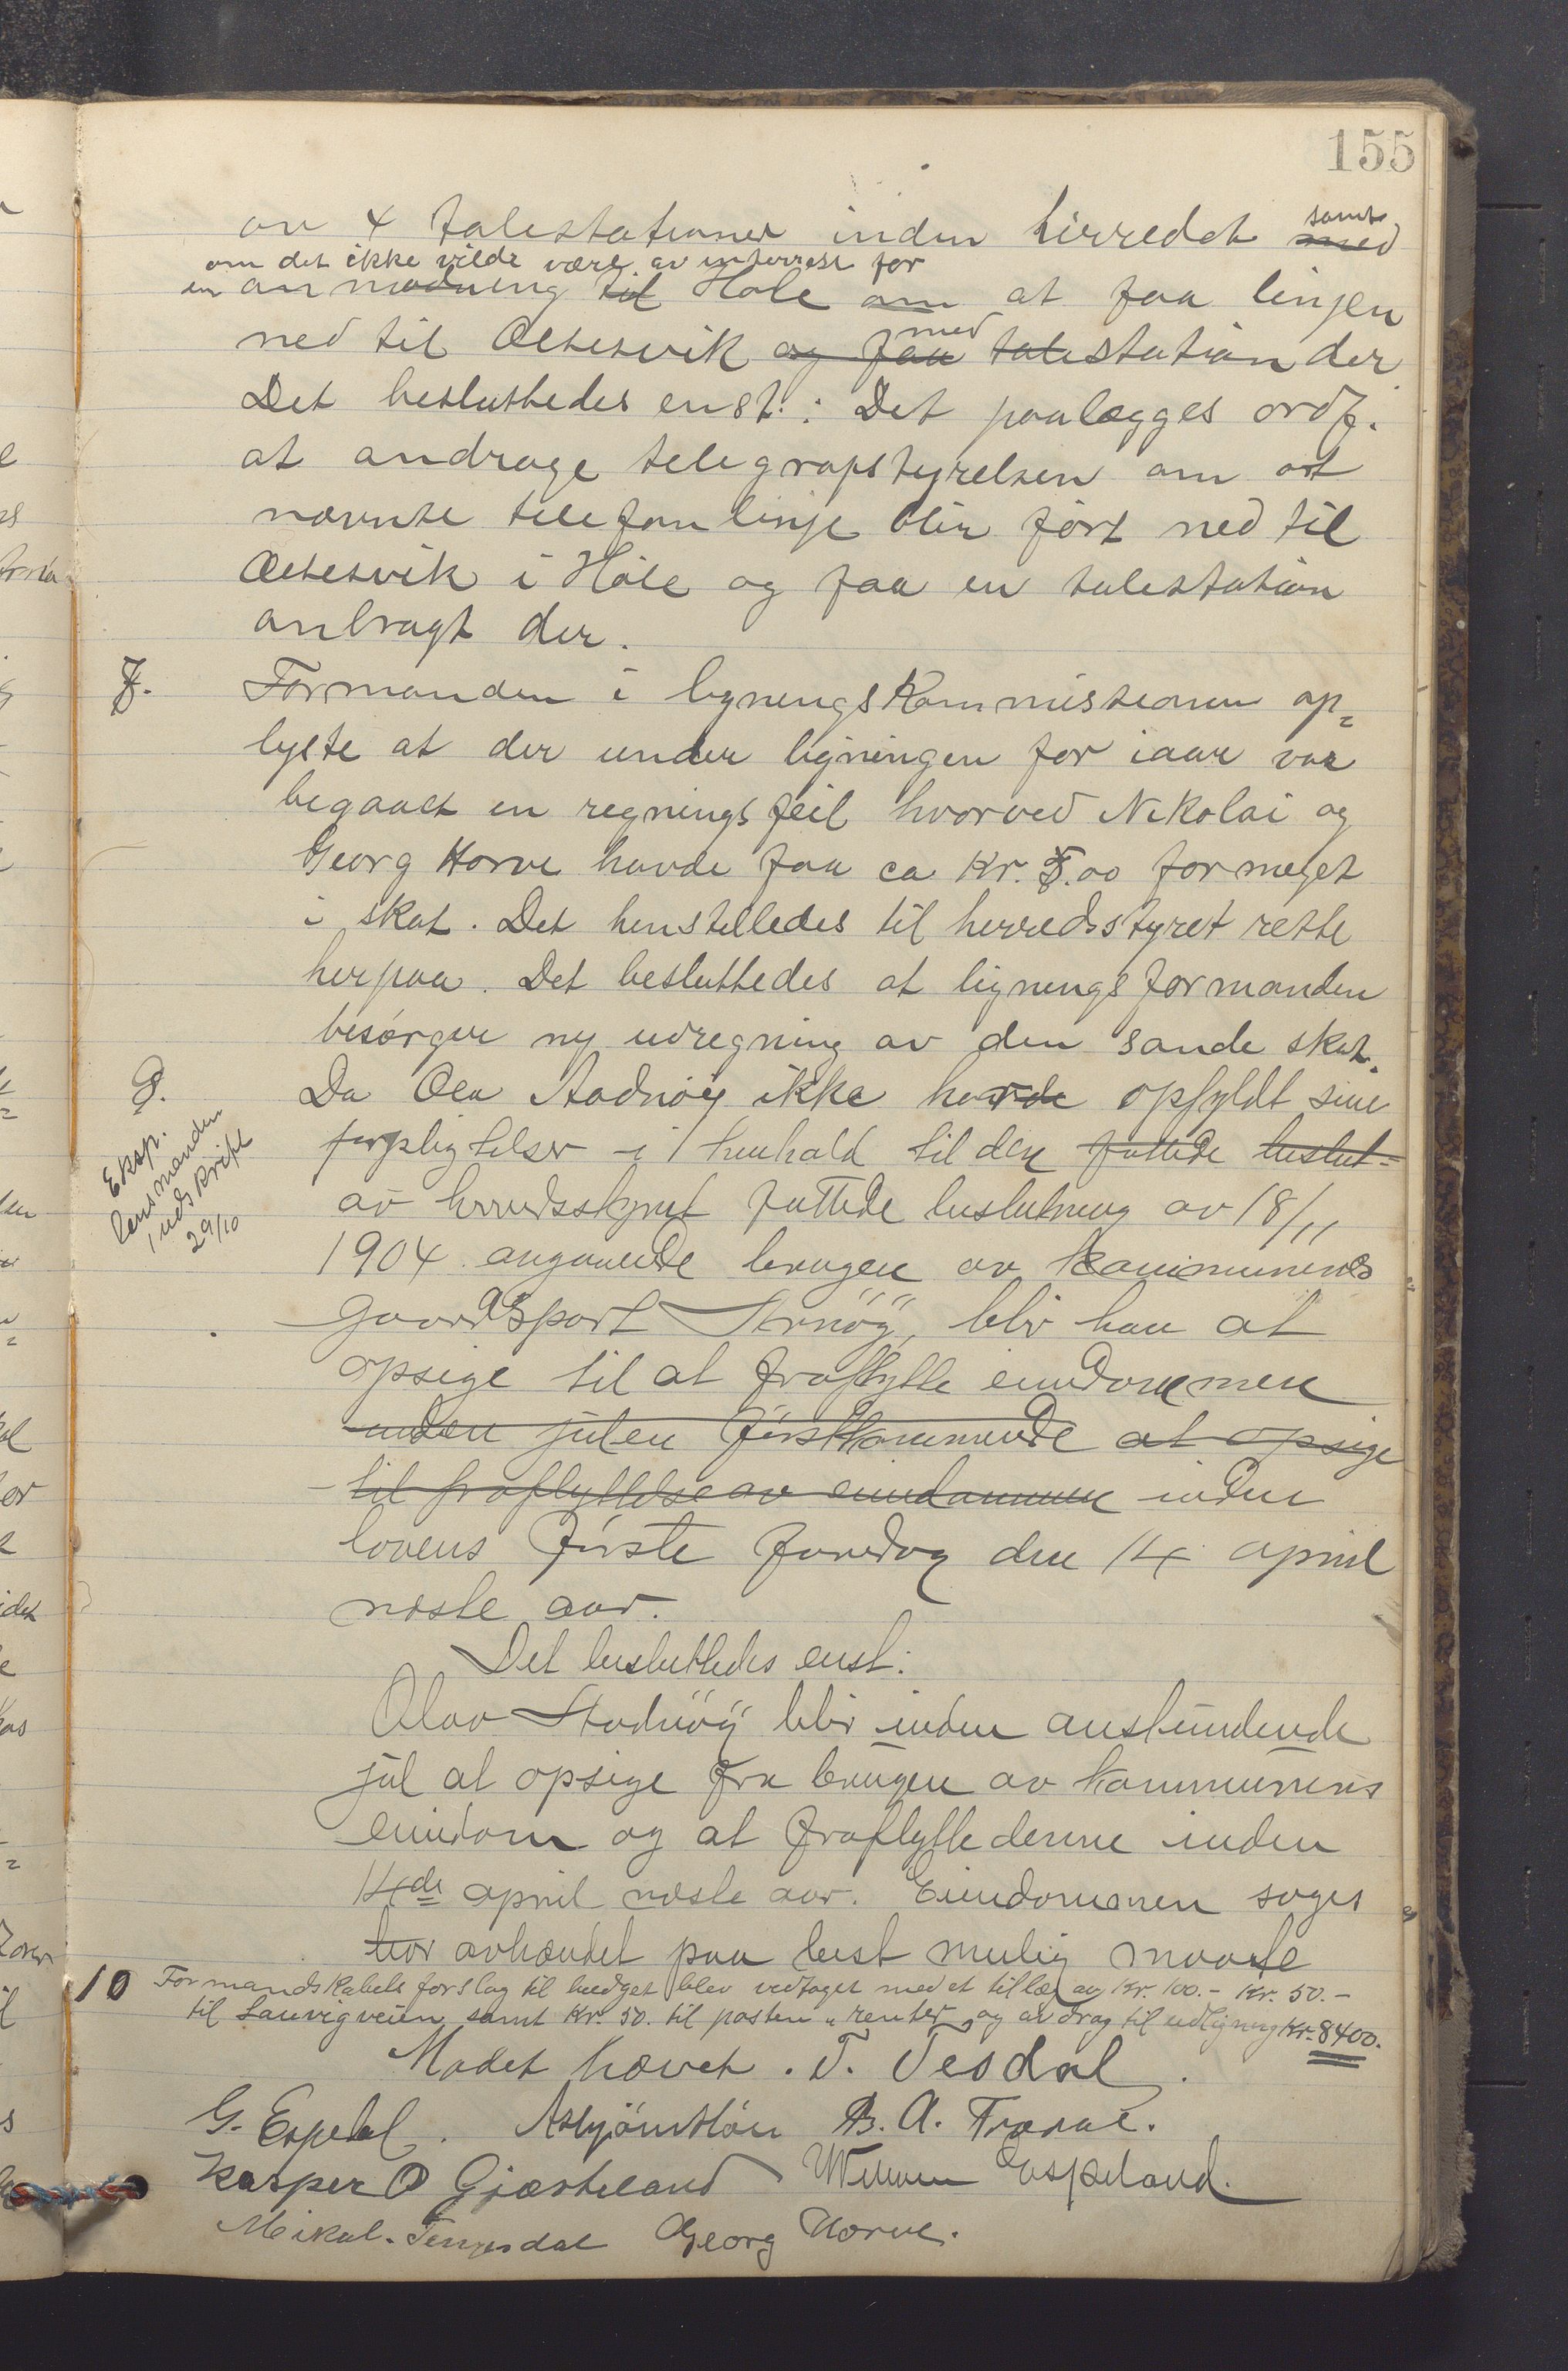 155
av 4 talestationer inden herredet med samt
om det ikke vilde være av interrese for
en anmodning til Høle om at faa linjen
ned til Oltesvik og faa med talestation der
Det besluttedes enst.: Det paalægges ordf.
at andrage telegrafstyrelsen om at
nævnte telefonlinje blir ført ned til
Oltesvik i Høle og faa en talestation
anbragt der.
Formanden i ligningskommissionen op=
lyste at der under ligningen for iaar var
begaaet en regningsfeil hvorved Nikolai og
Georg Horve havde faa ca Kr. 5.00 formeget
i skat. Det henstilledes til herredsstyret rette
herpaa. Det besluttedes at ligningsformanden
besørger ny udregning av den sande skat.
9.
Eksp.
lensmanden
i udskrift
29/10
Da Ola Aadnøy ikke havde opfyldt sine
forpligtelser i henhold til den fattede beslut=
av herredsstyret fattede beslutning av 18/11
1904 angaaende brugen av kommunens
gaardspart Arnøy, blir han at
opsige til at fraflytte eiendommen
inden julen førstkommende at opsige
til fraflyttelse av eiendommen inden
lovens første faredag den 14 april
næste aar.
Det besluttedes enst:
Olav Aadnøy blir inden anstundende
jul at opsige fra brugen av kommunens
eiendom og at fraflytte denne inden
14de april næste aar. Eiendommen søges
avhændet paa best mulig maate
10 Formandskabets forslag til budget blev vedtaget med et tillæg av Kr. 100.- Kr. 50.-
til Lauvigveien samt Kr. 50. til posten "renter og avdrag til udligning Kr. 8400.
Mødet hævet. T. Tesdal.
G. Espedal. Asbjørn Høn B. A. Træsné.
Kasper O Gjæsteland Espeland.
Mikal. Tengesdal Georg Horve.